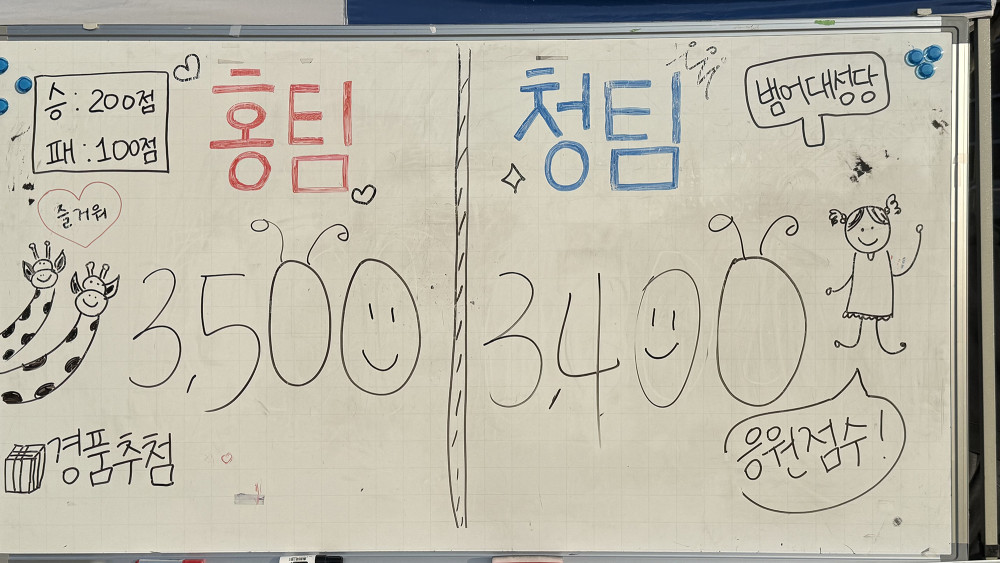 승 : 200점
패 : 100점
즐거워
홍팀
3,500
경품추첨
청팀
3,400
범어대성당
응원점수!